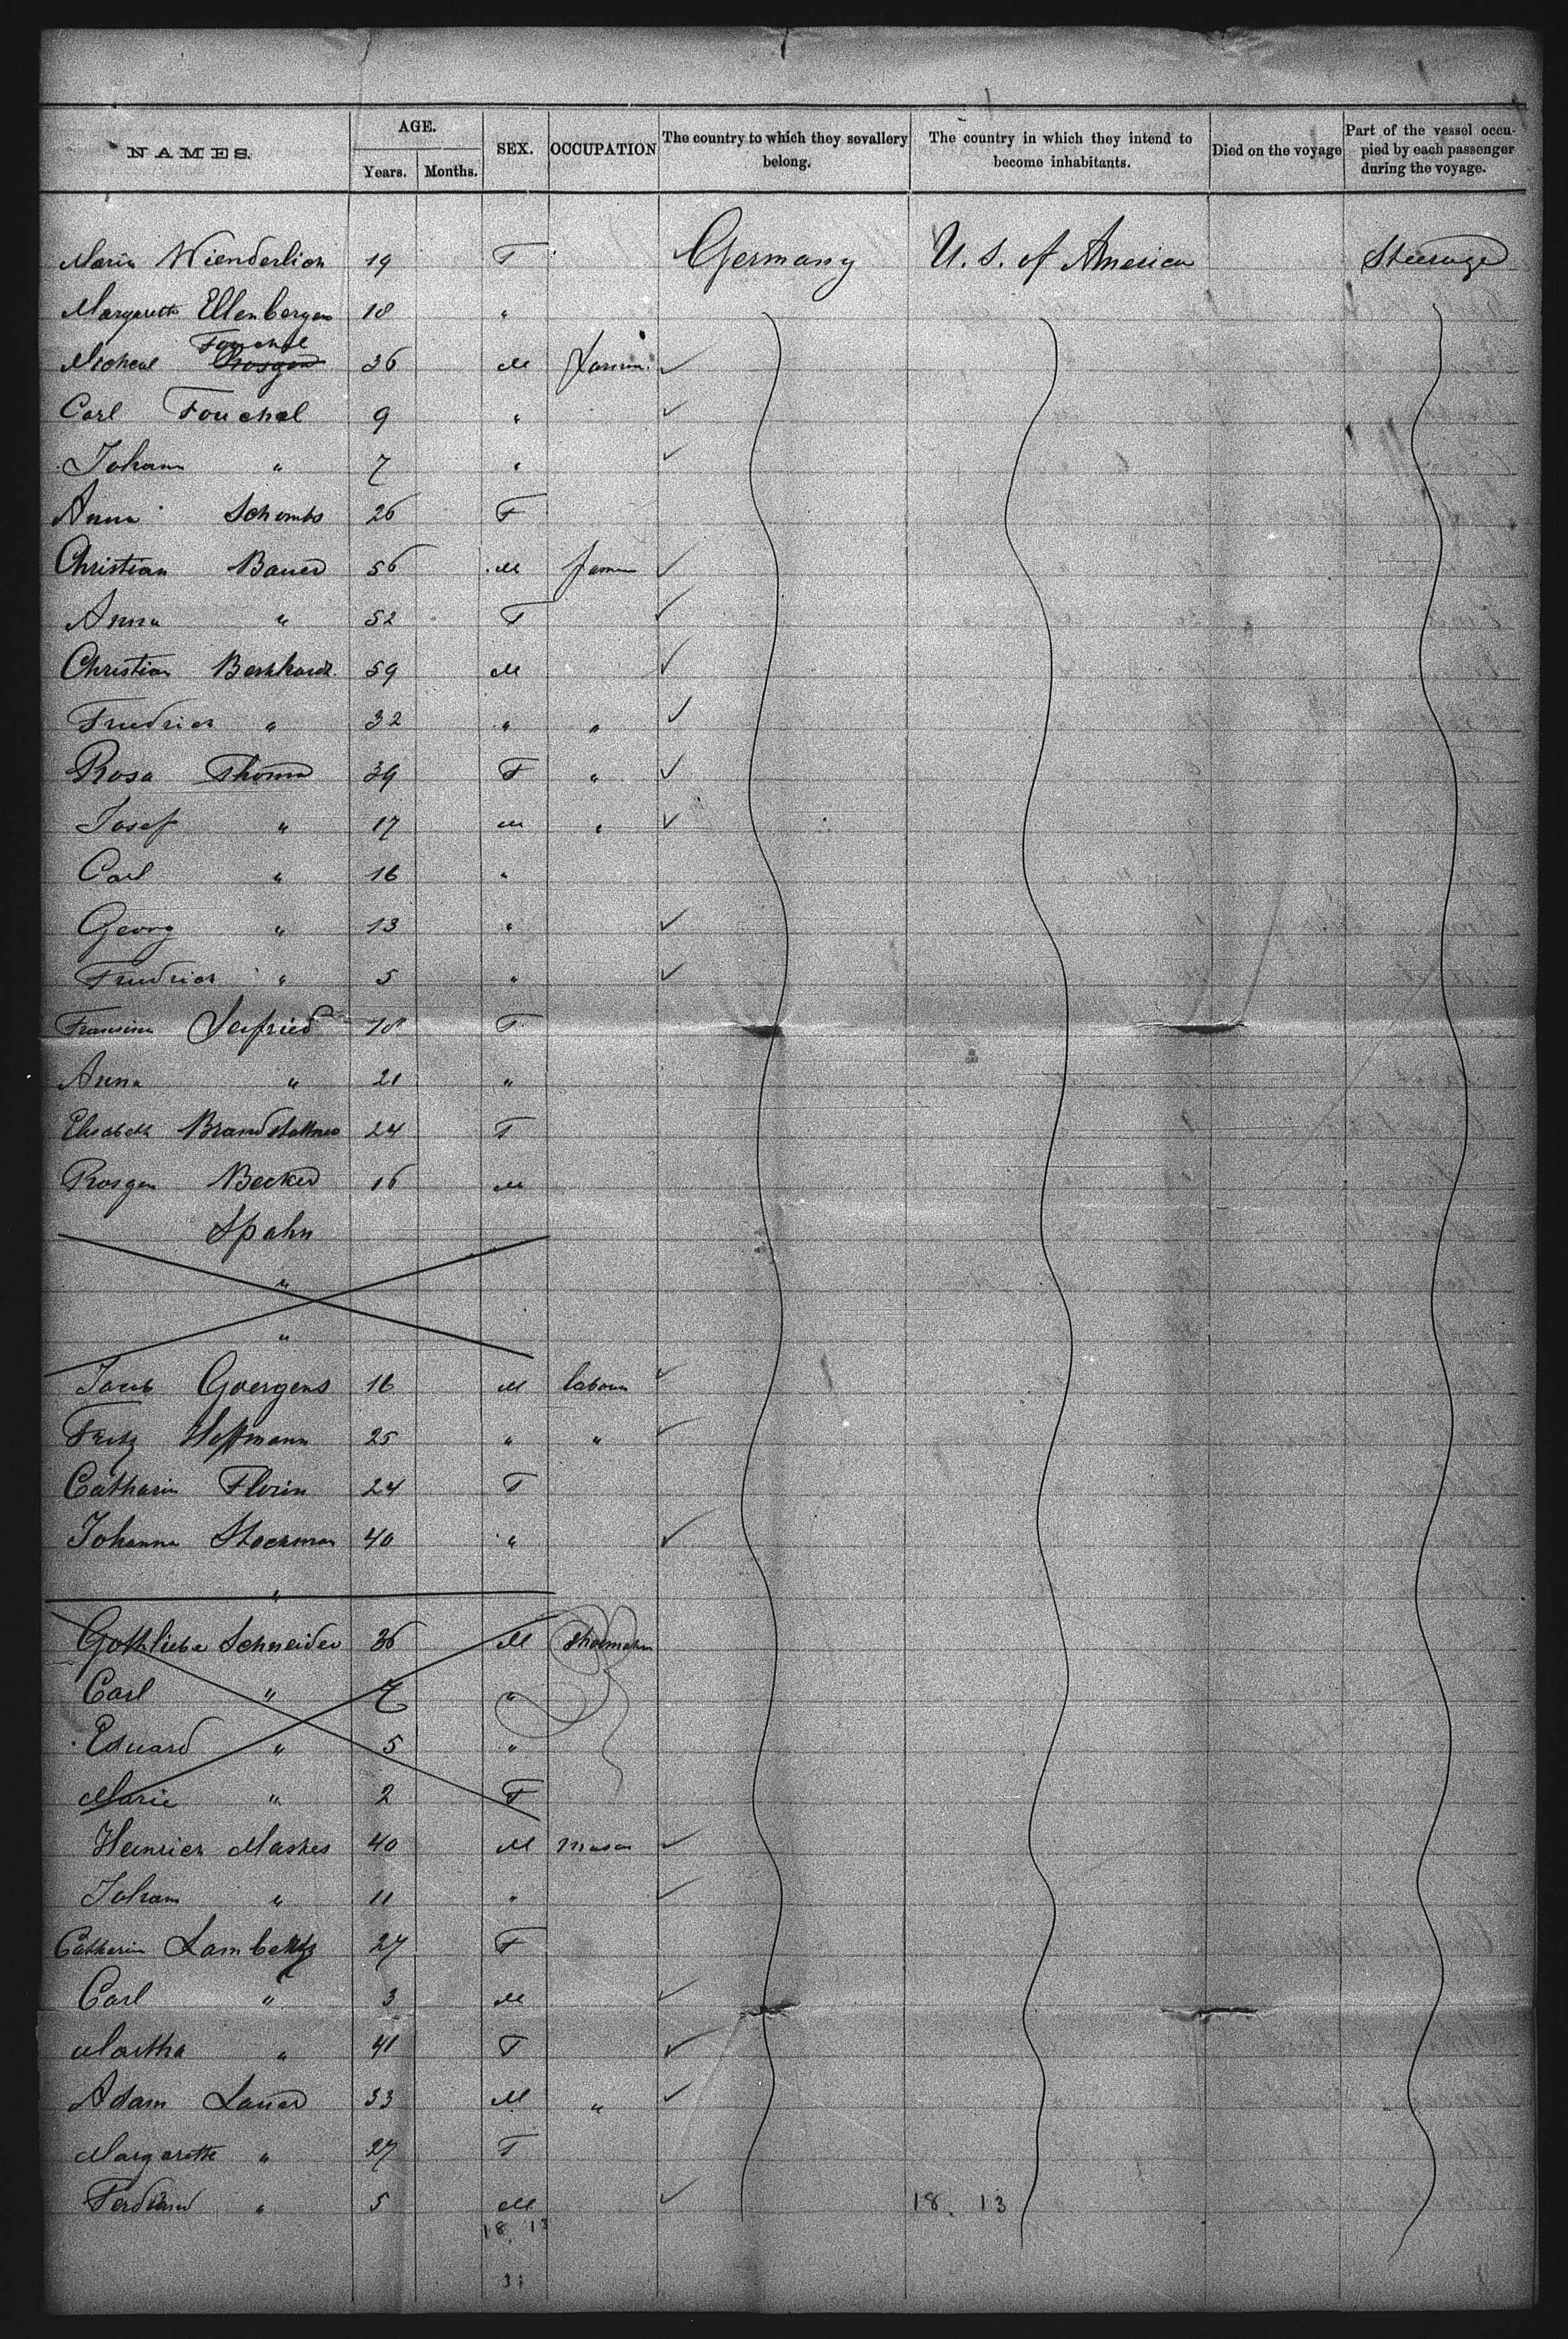 NAMES. AGE. SEX. OCCUPATION The country to which they sevallery belong. The country in which they intend to become inhabitants. Died on the voyage Part of the vessel occupied by each passenger during the voyage.
Years. Months.
Maria Wienderlich 19 F Germany U. S. of America Steerage
Margareth Ellenberger 18 "
Fouchel
Micheal 36 M
Carl Fouchel 9 "
Johann " 7 "
Anna Schombs 26 F
Christian Bauer 56 M farmer
Anna " 52 F
Christian 59 M
Friedrich " 32 " "
Rosa Thoma 39 F "
Josef " 17 M "
Carl " 16 "
Georg " 13 "
Friedrich " 5 "
Seifried F
Anna " 21 "
Elisabeth Brandstattner 24 F
Becker 16 M
Spahn
"
"
Jacob Goergens 16 M labour
Fritz Hoffmann 25 " "
Catharin Florin 24 F
Johanna Stockman 40 "
"
Gottliebe Schneider 36 M Shoemaker
Carl " 7 "
Eduard " 5 "
Marie " 2 F
Heinrich Maskes 40 M mason
Johann " 11 "
Catharin Lambertz 27 F
Carl " 3 M
Martha " 41 F
Adam Lauer 33 M "
Margarette " 27 F
Ferdinand " 5 M 18. 13
18 13
31